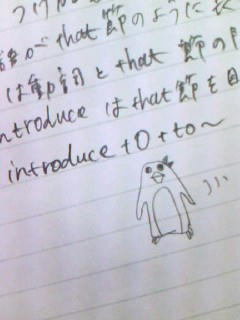 つけ
語が that節のように長
は動詞と that 節の
introduce は that節を目
introduce + O + to~